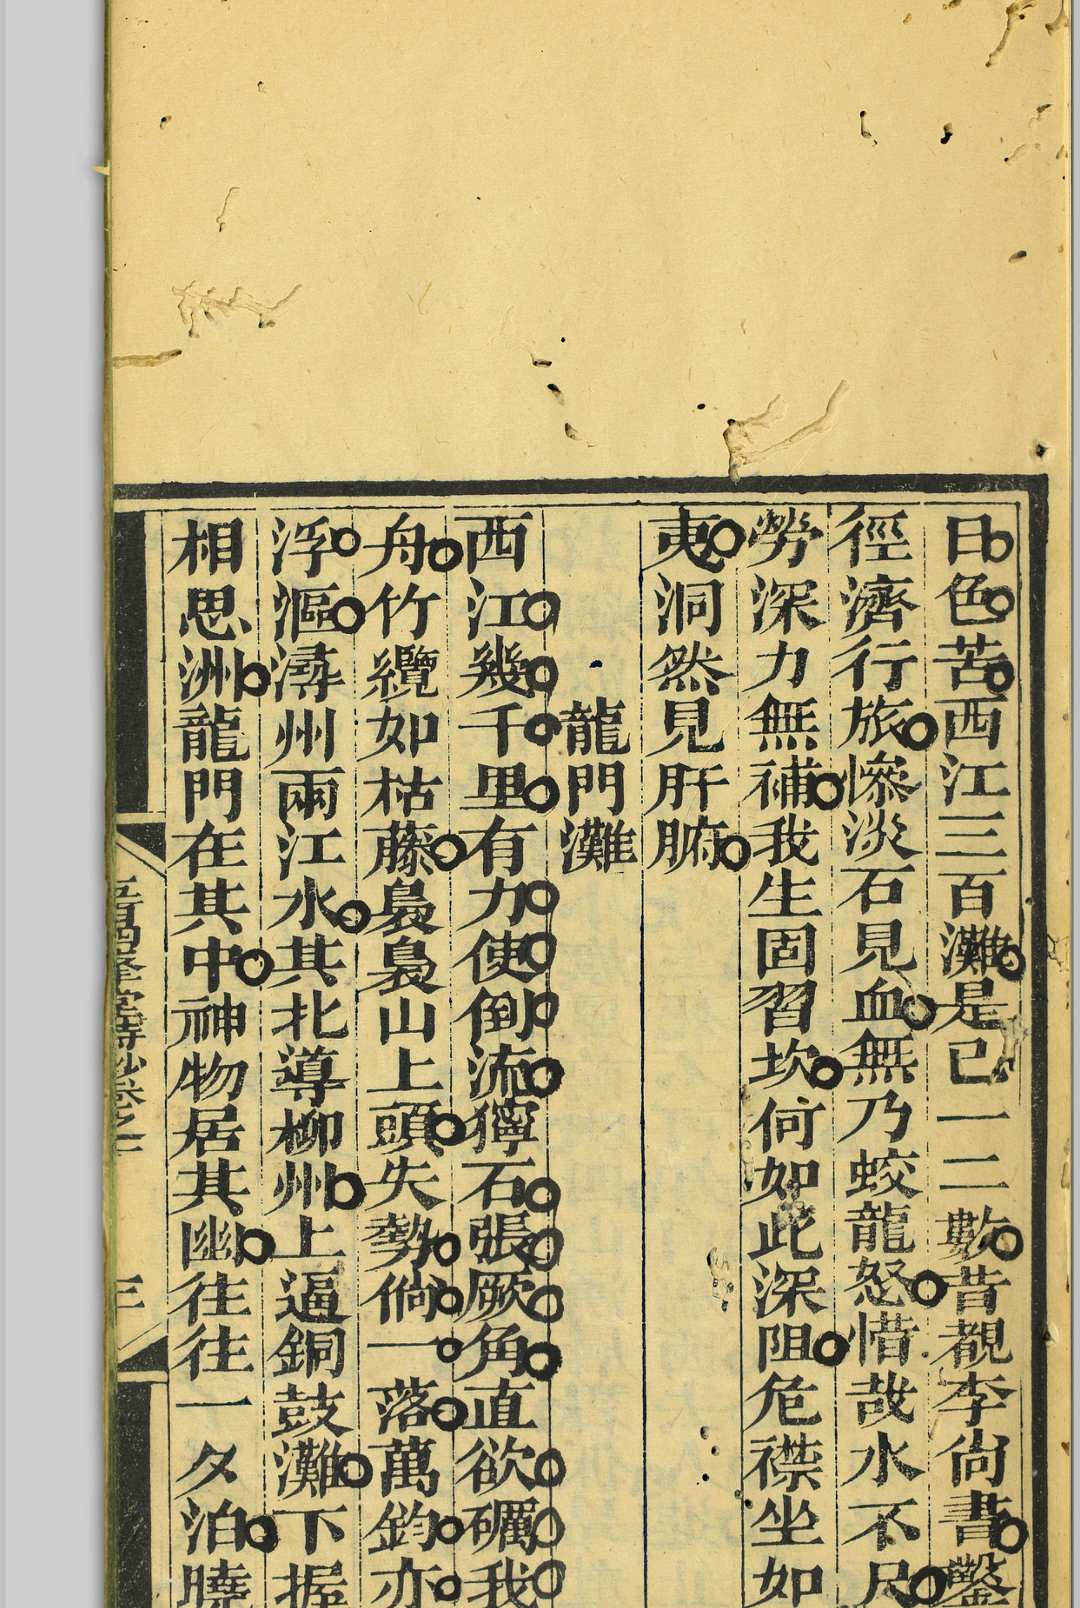 日色苦西江三百灘是已一二數昔覩李尚書鑿
徑濟行旅慘淡石見血無乃蛟龍怒惜哉水不尺
勞深力無補我生固習坎何如此深阻危襟坐如
夷洞然見肝腑
龍門灘
西江幾千里有力使倒流獰石張厥角直欲礪我
舟竹纜如枯藤裊裊山上頭失勢倘一落萬鈞亦
浮漚潯州兩江水其北導柳州上逼銅鼓灘下握
相思洲龍門在其中神物居其幽往往一夕泊曉
三